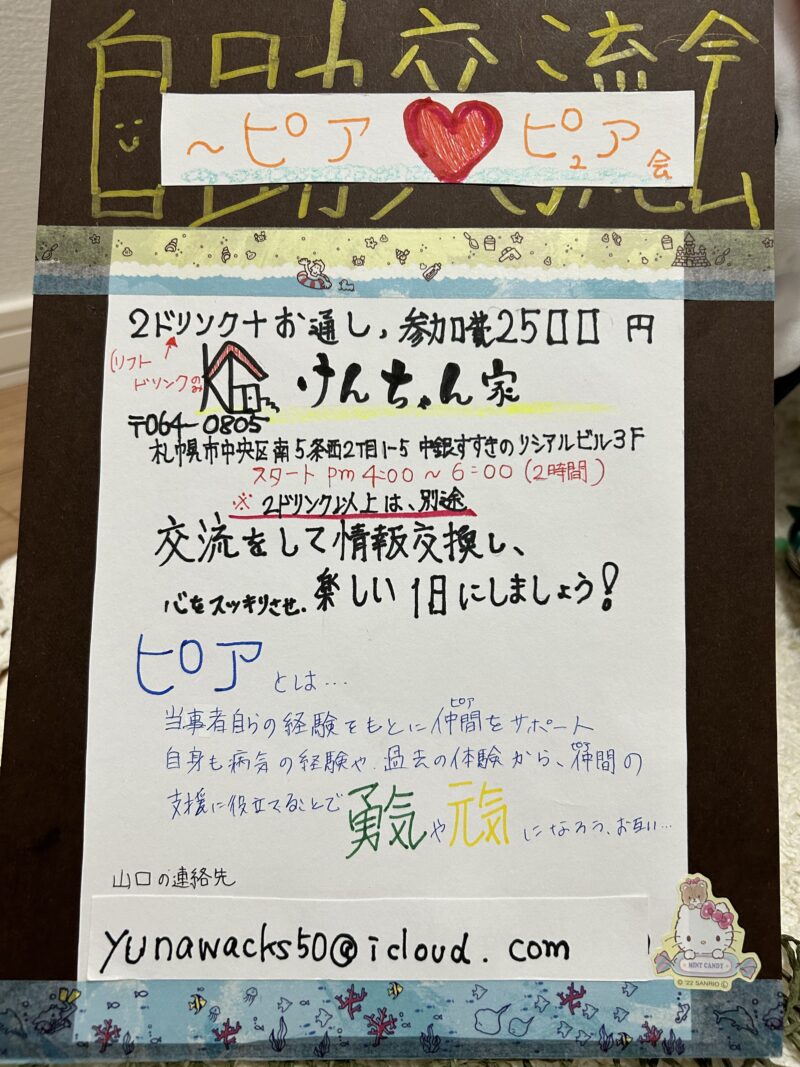 自助交流会
～ピア ピュア会
2ドリンク+お通し、参加費2500円
(ソフト
ドリンクのみ
けんちゃん家
〒064-0805
札幌市中央区南5条西2丁目1-5 中銀すすきのリシアルビル3F
スタート pm 4:00～6:00 (2時間)
※ 2ドリンク以上は、別途
交流をして情報交換し、
心をスッキリさせ、楽しい1日にしましょう!
ピアとは…
当事者自らの経験をもとに仲間(ピア)をサポート
自身も病気の経験や、過去の体験から、仲間(ピア)の
支援に役立てることで勇気や元気になろう、お互い…
山口の連絡先
yunawacks50@icloud.com
MINT CANDY
© '22 SANRIO Ⓛ